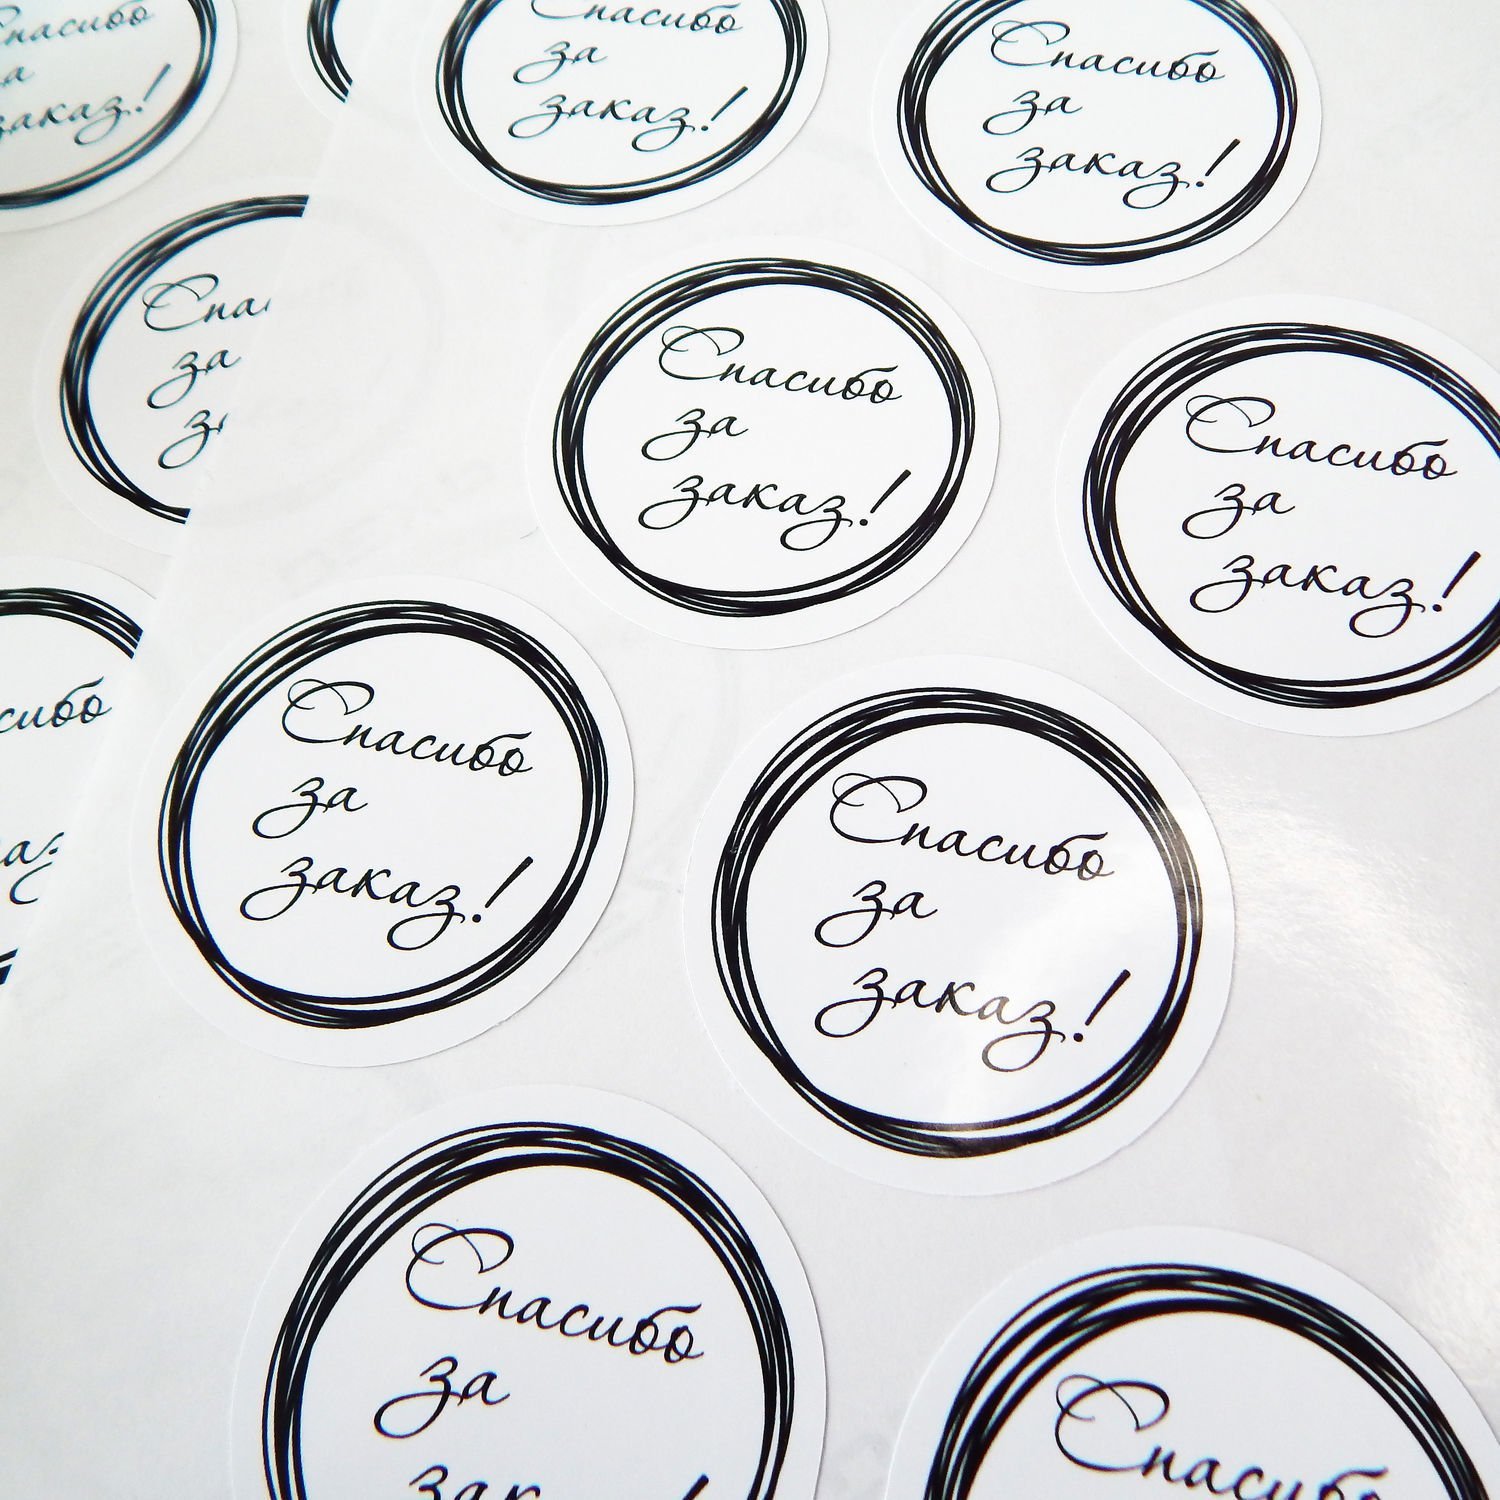 Спасибо
за
заказ!
Спасибо
за
заказ!
Спасибо
за
заказ!
Спасибо
за
заказ!
Спасибо
за
заказ!
Спасибо
за
заказ!
Спасибо
за
заказ!
Спасибо
за
заказ!
Спасибо
за
Спасибо
за